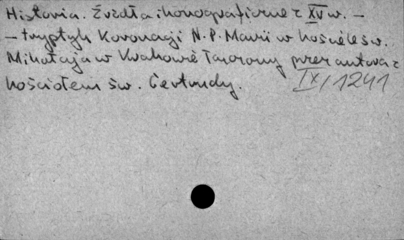 Historia. Źródła ikonograficzne z XV w. –
– tryptyk Koronacji N.P. Marii w kościele św.
Mikołaja w Krakowie tworzony przez autora z
kościołem św. Gertrudy.
IX/1241